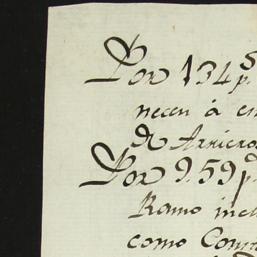 Por 134 p.s
necen á en
R Arrieros
Por 9.59 p.s
Ramo incl
como Com